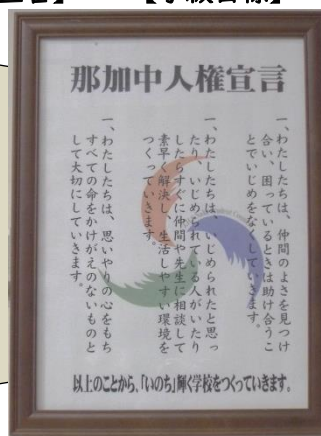 那加中人権宣言
一、わたしたちは、仲間のよさを見つけ
合い、困っているときは助け合うこ
とでいじめをなくしていきます。
一、わたしたちは、いじめられたと思っ
たり、いじめられている人がいたり
したらすぐに仲間や先生に相談して
素早く解決し、生活しやすい環境を
つくっていきます。
一、わたしたちは、思いやりの心をもち
すべての命をかけがえのないものと
して大切にしていきます。
以上のことから、「いのち」輝く学校をつくっていきます。